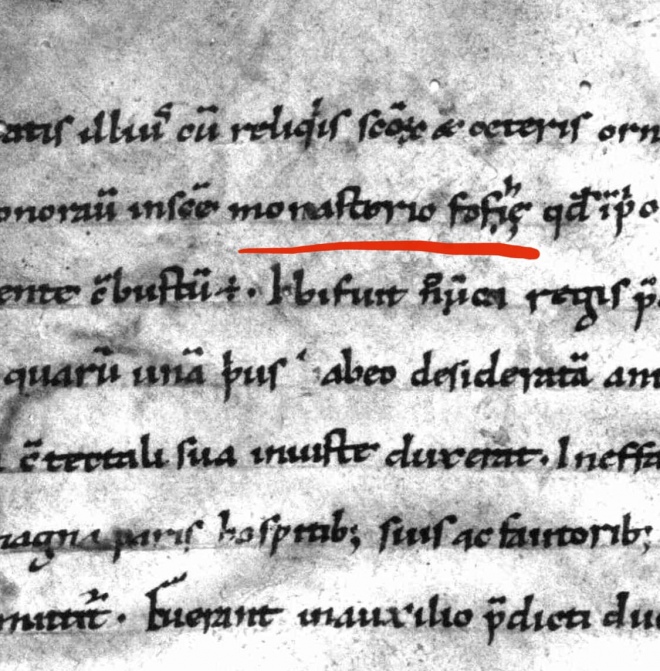 atis illiuˢ cū reliqis scōꝝ & ceteris orn
onoraū insēe monasterio foſię qd ipo
ente c̄bustū ÷ · Ibi fuit regis p̄
quarū unā p̄us abeo desideratā am
c̄tectali sua iniuste duxerat · Ineffa
magna paris hospitib; suis ac fautorib;
mittit̄ · Fuerant inauxilio p̄dicti duc